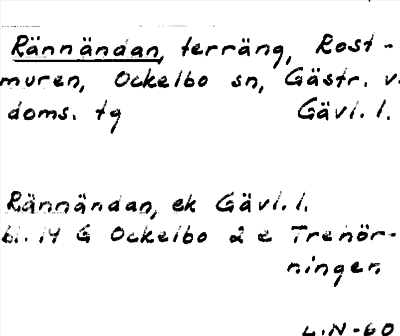 Rännändan, terräng, Rost-
muren, Ockelbo sn, Gästr. v.
doms. tg Gävl. l.
Rännändan, ek Gävl. l.
bl. 14 G Ockelbo 2 e Trehör-
ningen
L.N-60